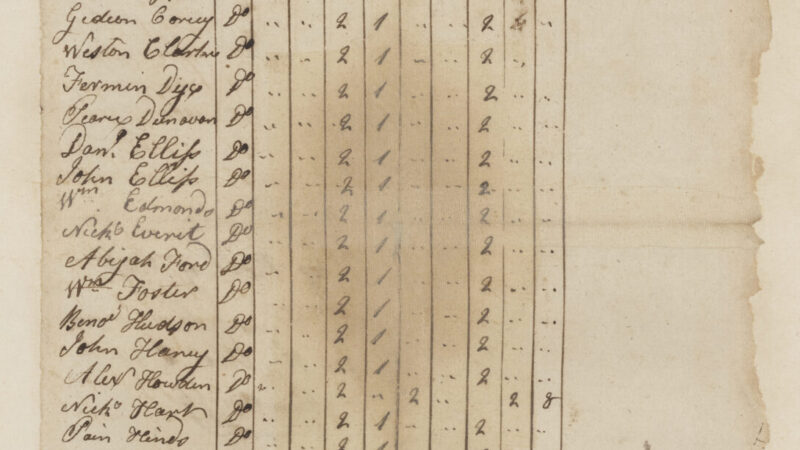 Gideon Corey Do .. .. 2 1 .. .. 2 .. ..
Weston Clarke Do .. .. 2 1 .. .. 2 .. ..
Fermin Dye Do .. .. 2 1 .. .. 2 .. ..
Pearce Donovan Do .. .. 2 1 .. .. 2 .. ..
Danl. Elliss Do .. .. 2 1 .. .. 2 .. ..
John Elliss Do .. .. 2 1 .. .. 2 .. ..
Wm Edmonds Do .. .. 2 1 .. .. 2 .. ..
Nicho Everit Do .. .. 2 1 .. .. 2 .. ..
Abijah Ford Do .. .. 2 1 .. .. 2 .. ..
Wm Foster Do .. .. 2 1 .. .. 2 .. ..
Hudson Do .. .. 2 1 .. .. 2 .. ..
John Haney Do .. .. 2 1 .. .. 2 .. ..
Alex Howden Do .. .. 2 .. 2 .. .. 2 8
Nicho Hart Do .. .. 2 1 .. .. 2 .. ..
Pain Hinds Do .. .. 2 1 .. .. 2 .. ..